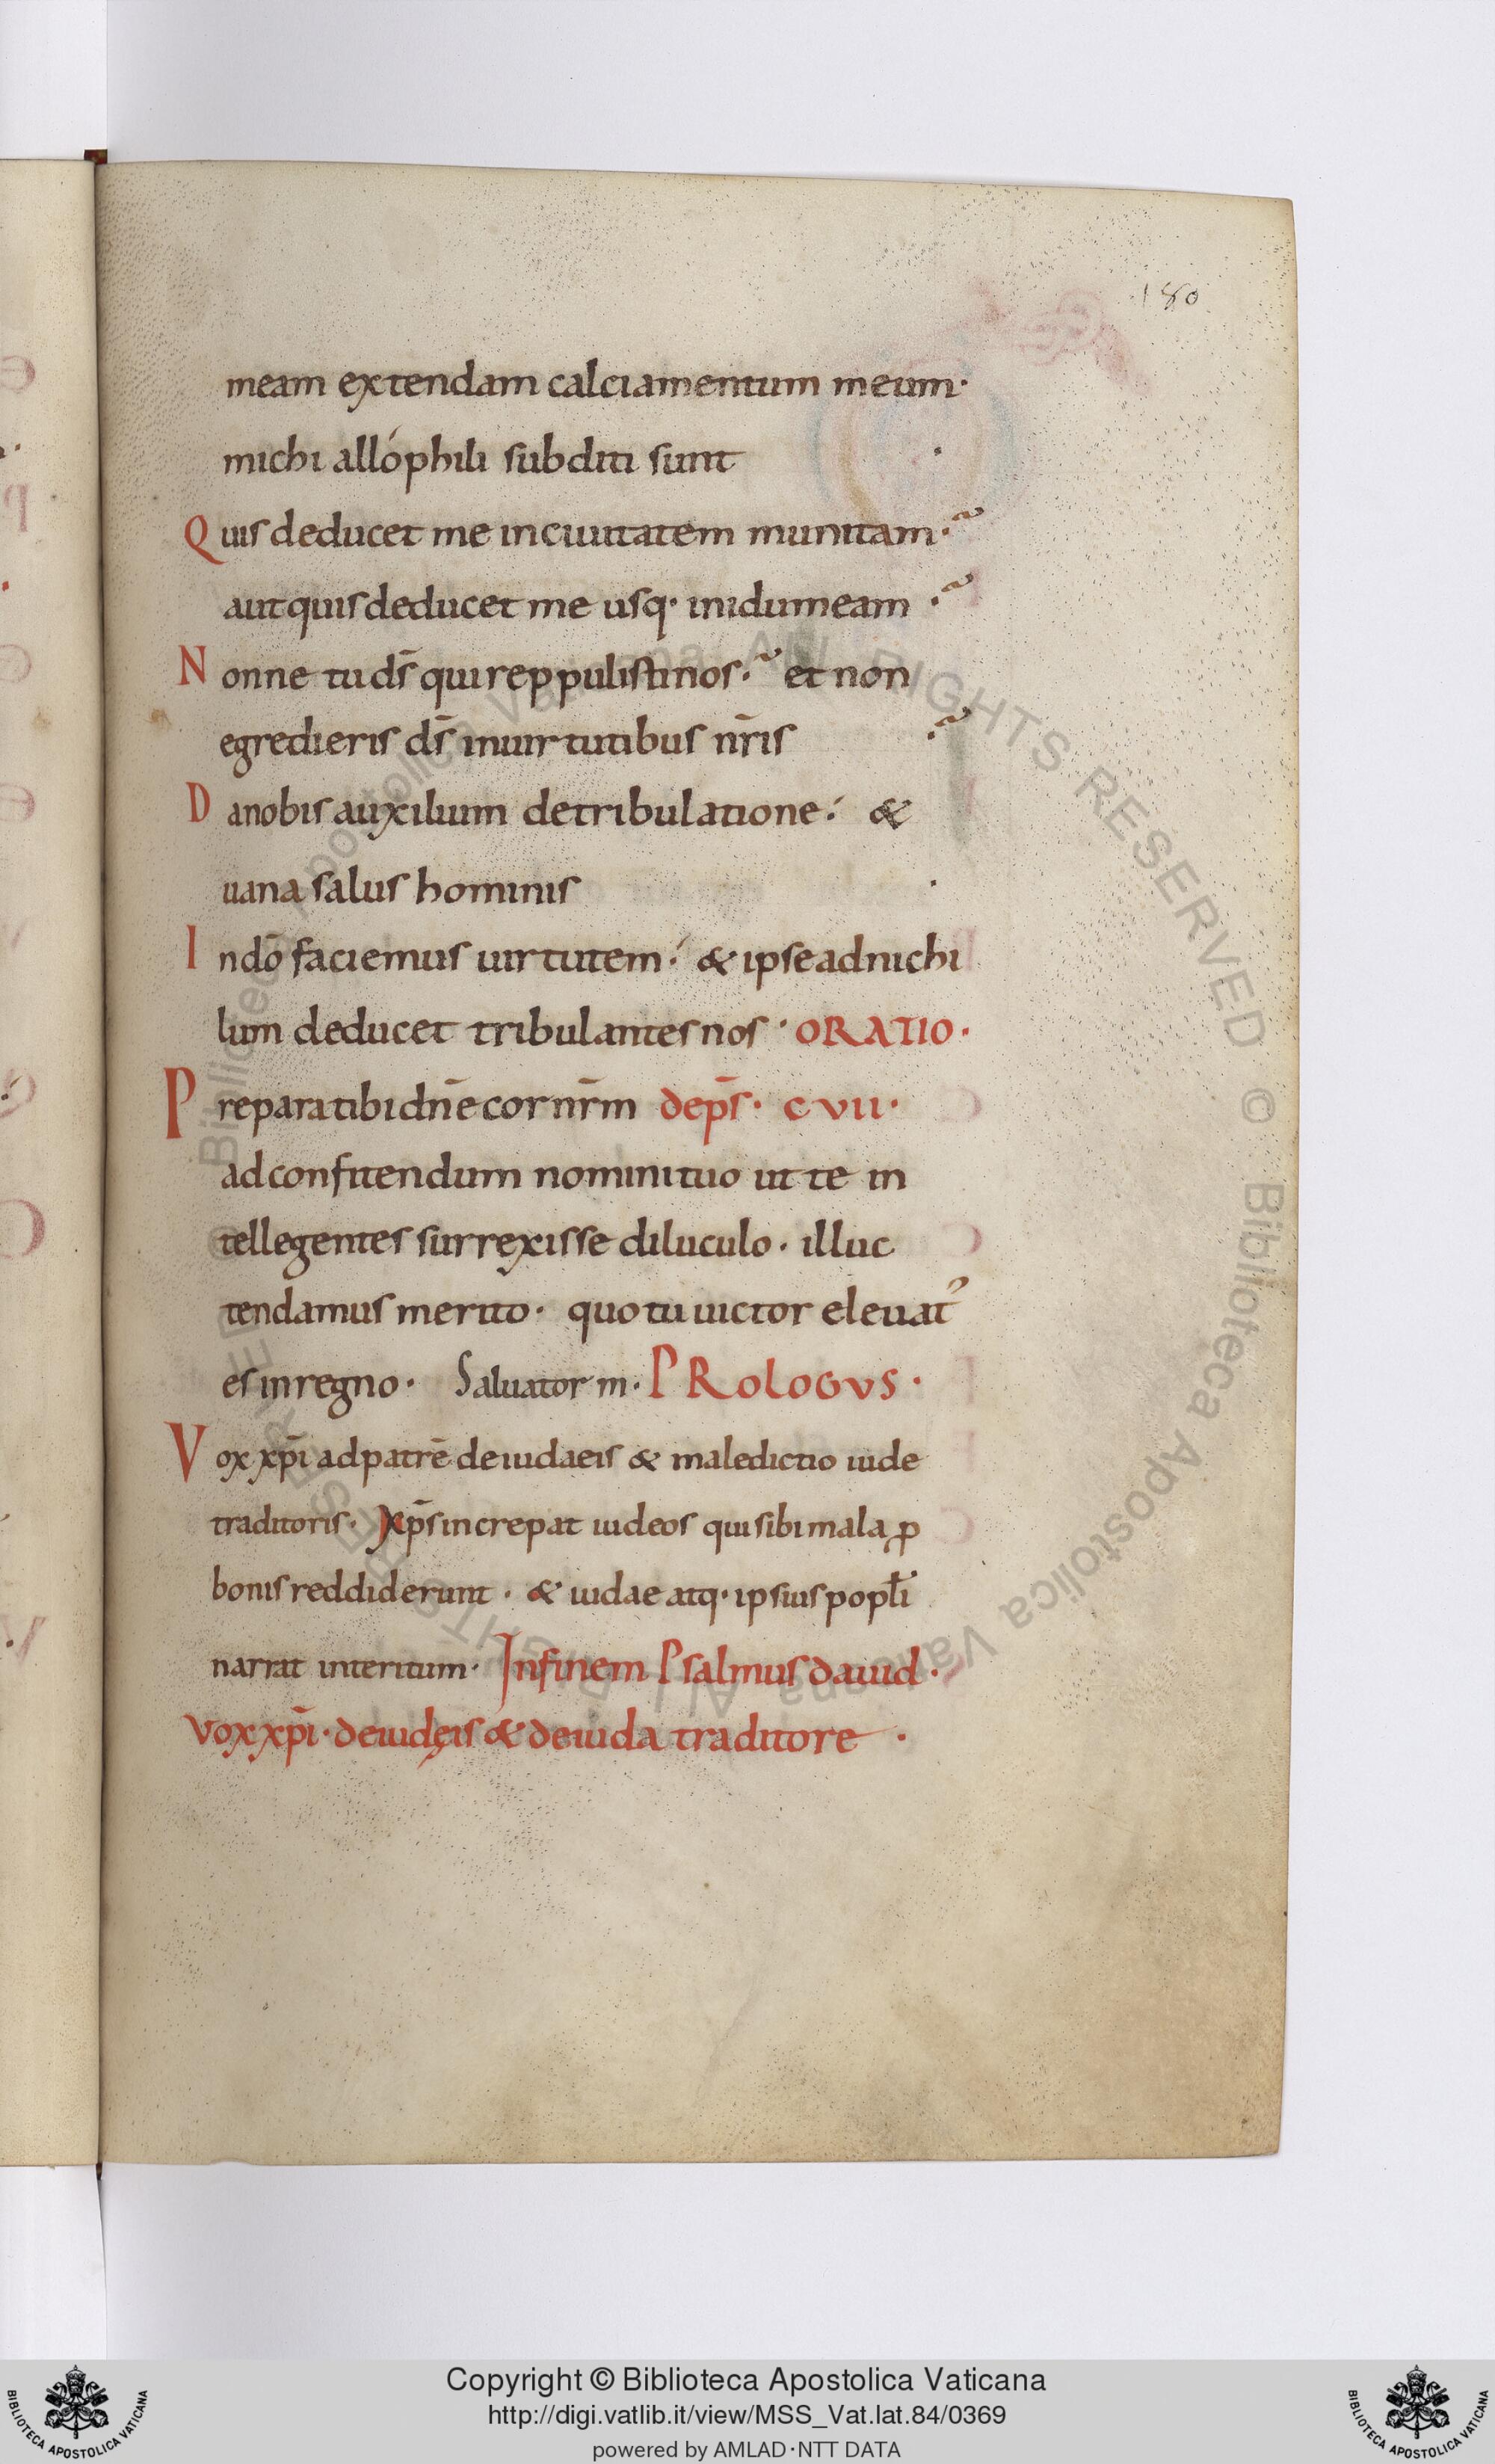 180
meam extendam calciamentum meum·
michi allóphili subditi sunt ·
Quis deducet me inciuitatem munitam·~
aut quis deducet me usq· inidumeam ·~
Nonne tu dS̄ qui reppulisti nos·~ et non
egredieris dS̄ inuirtutibus nr̄is ·~
Danobis auxilium detribulatione·́ &
uana salus hominis ·
Indō faciemus uirtutem·́ & ipse adnichi
lum deducet tribulantes nos · ORATIO·
Preparatibi dn̄e cor nr̄m dep̄s· cvii·
ad confitendum nomini tuo ut te in
tellegentes surrexisse diluculo· illuc
tendamus merito· quo tu uictor eleuat᾽
es inregno· Saluator m· PROLOGVS·
Vox xp̄i ad patrē deiudaeis & maledictio iude
traditoris· Xp̄s increpat iudeos qui sibi mala ꝓ
bonis reddiderunt· & iudae atq· ipsius popl̄i
narrat interitum· Infinem Psalmus dauid·
Vox xp̄i· deiudęis & deiuda traditore ·
Copyright © Biblioteca Apostolica Vaticana
http://digi.vatlib.it/view/MSS_Vat.lat.84/0369
powered by AMLAD·NTT DATA
BIBLIOTECA APOSTOLICA VATICANA
BIBLIOTECA APOSTOLICA VATICANA